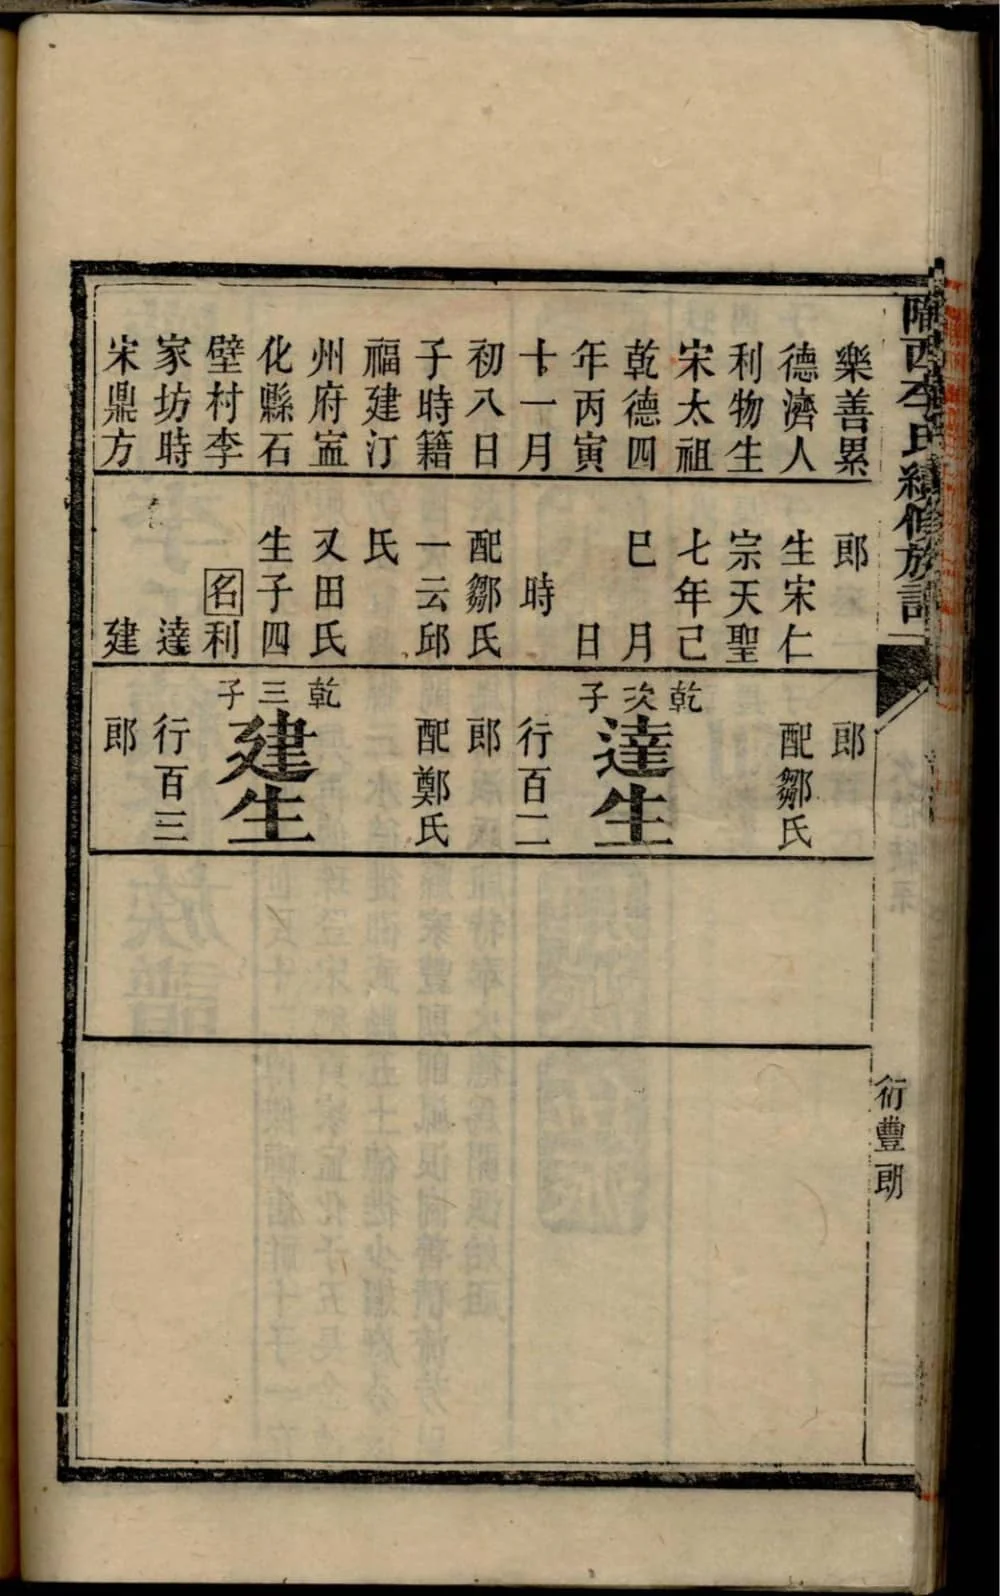 隴西李氏續修族譜
樂善累
德濟人
利物生
宋太祖
乾德四
年丙寅
十一月
初八日
子時籍
福建汀
州府寍
化縣石
壁村李
家坊時
宋鼎方
郎
生宋仁
宗天聖
七年己
巳月
日
時
配鄒氏
一云邱
氏
又田氏
生子四
名利
達
建
郎
配鄒氏
乾次子
達生
行百二
郎
配鄭氏
乾三子
建生
行百三
郎
衍豐郎